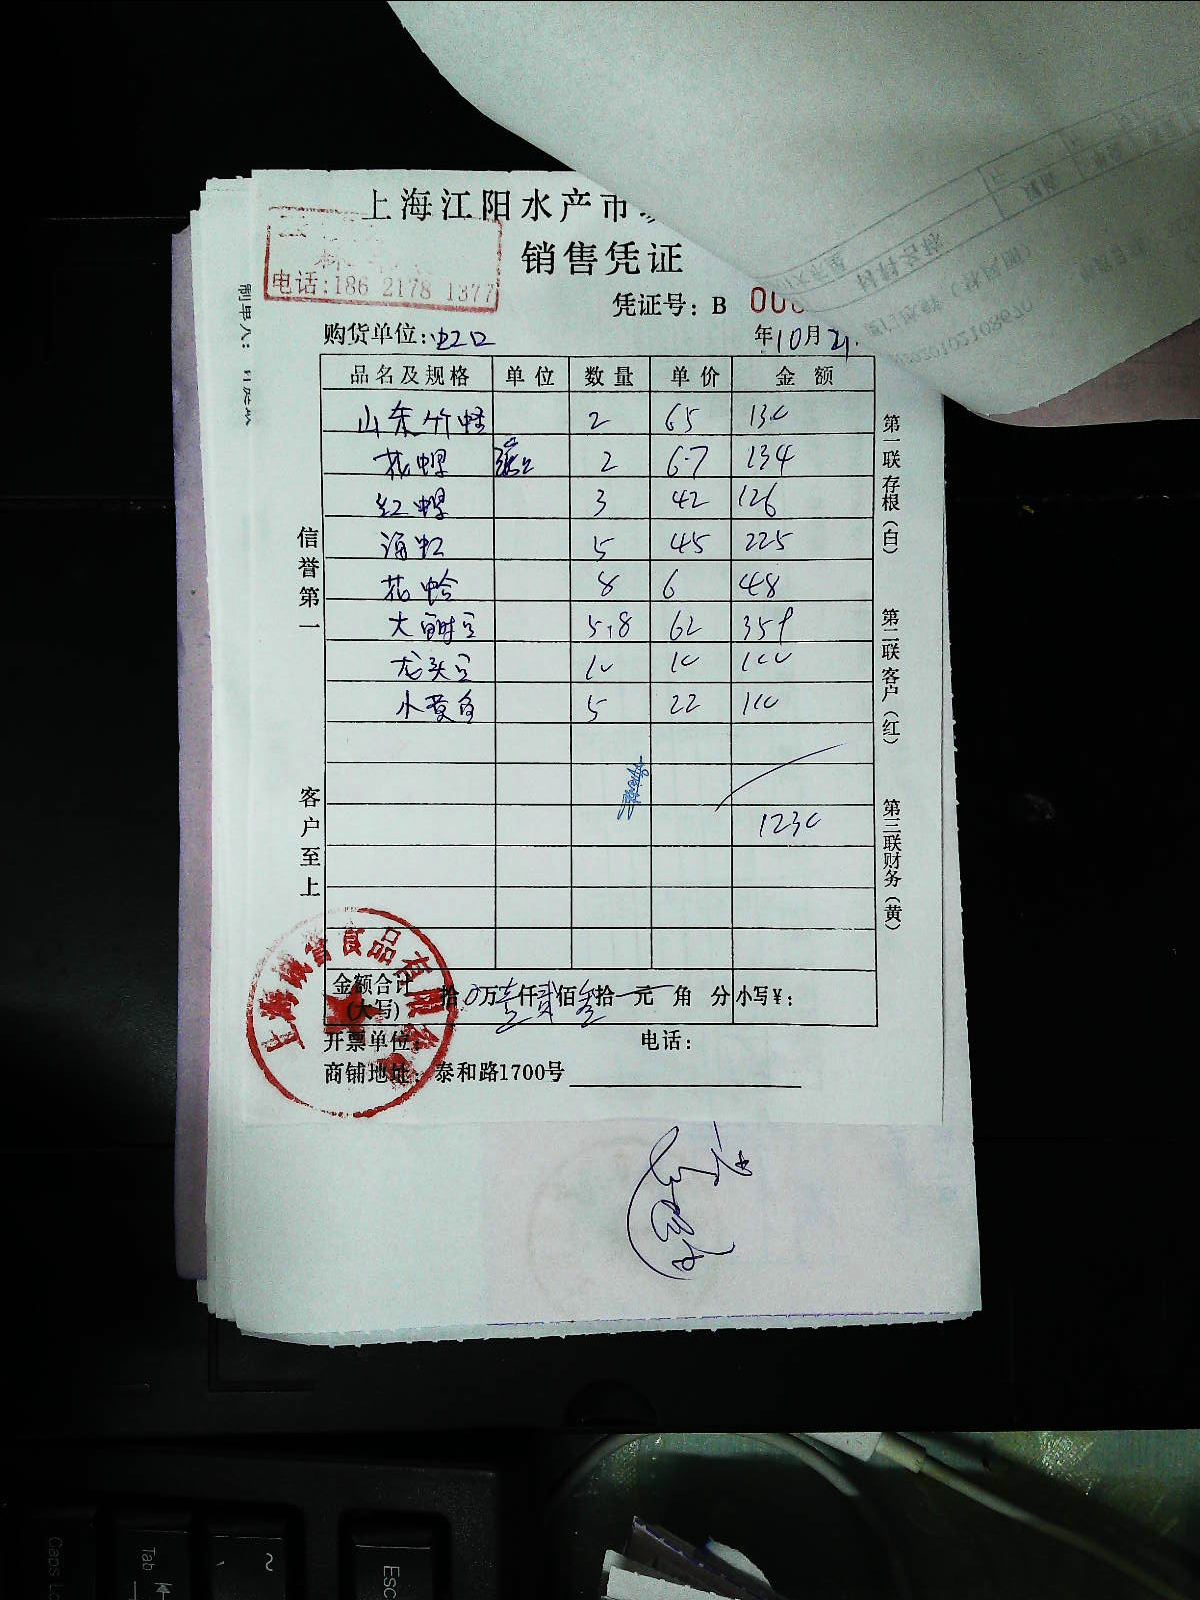 上海江阳水产市
销售凭证
电话:186 2178 1377
凭证号: B 000
购货单位:虹口 年10月21.
品名及规格 单位 数量 单价 金额
山东竹蛏 2 65 130
花螺 2 67 134
红螺 3 42 126
海虹 5 45 225
花蛤 8 6 48
大 5.8 62 359
龙头 10 10 100
小黄鱼 5 22 110
1230
信誉第一
客户至上
第一联存根(白)
第二联客户(红)
第三联财务(黄)
金额合计(大写) 拾0万壹仟贰佰叁拾一元 角 分 小写¥:
开票单位: 电话:
商铺地址: 泰和路1700号
上海 食品有限公司
Caps Lo
Tab
~
Esc